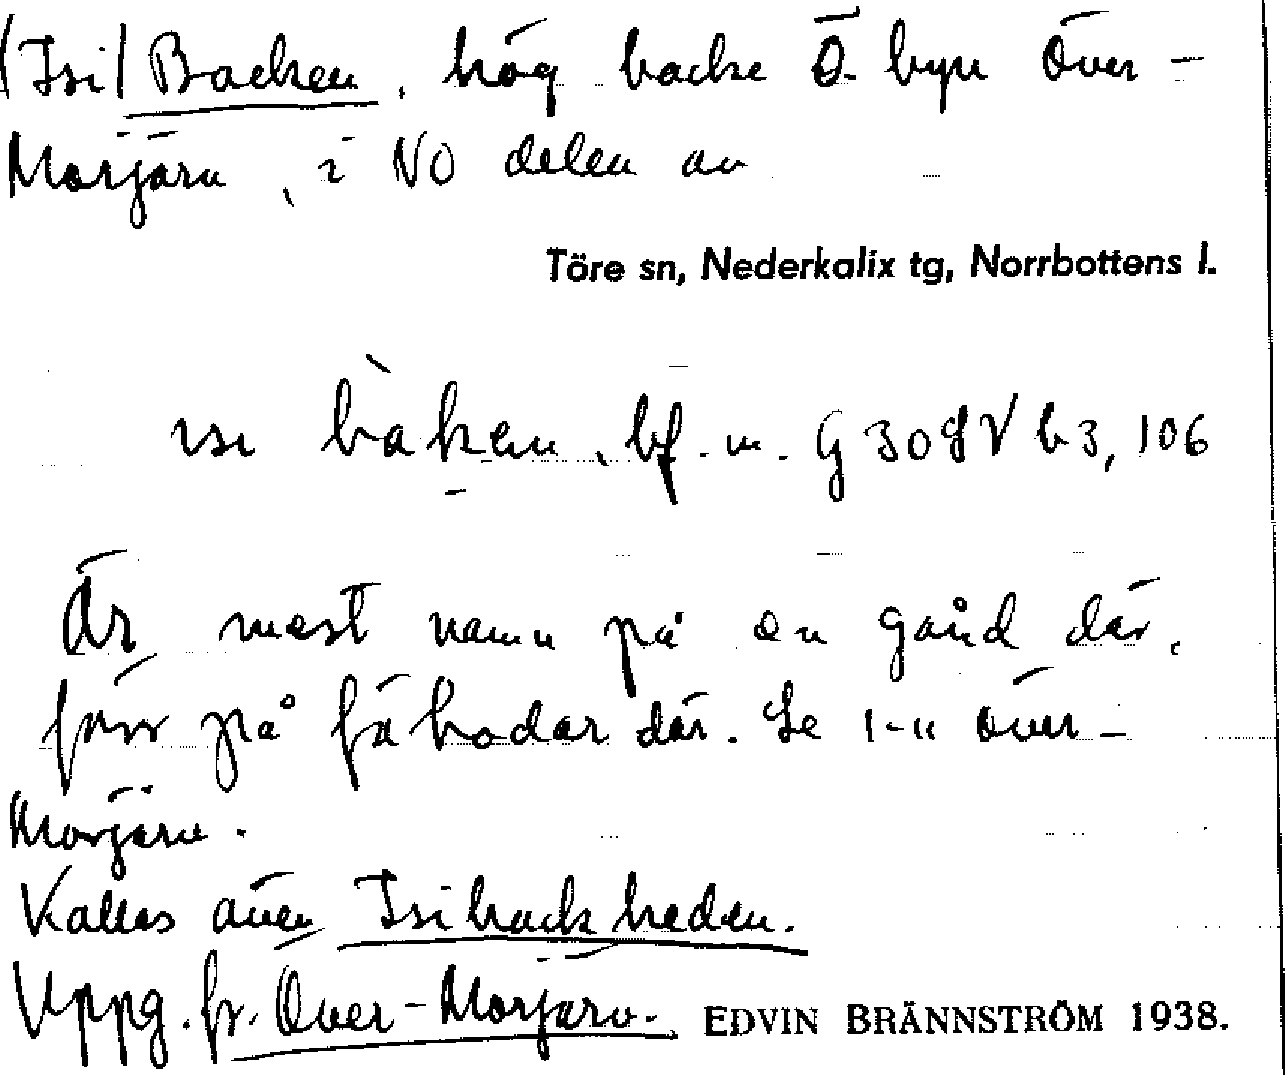 (Isi)Backen, hög backe Ö. byn Över-
Morjärv, i NO delen av
Töre sn, Nederkalix tg, Norrbottens l.
ısı bàken, bf. m. G 308 V b3, 106
Är mest namn på en gård där,
förr på fäbodar där. Se i-n över-
Morjärv.
Kallas även Isibackheden.
Uppg. fr. Över-Morjärv. EDVIN BRÄNNSTRÖM 1938.